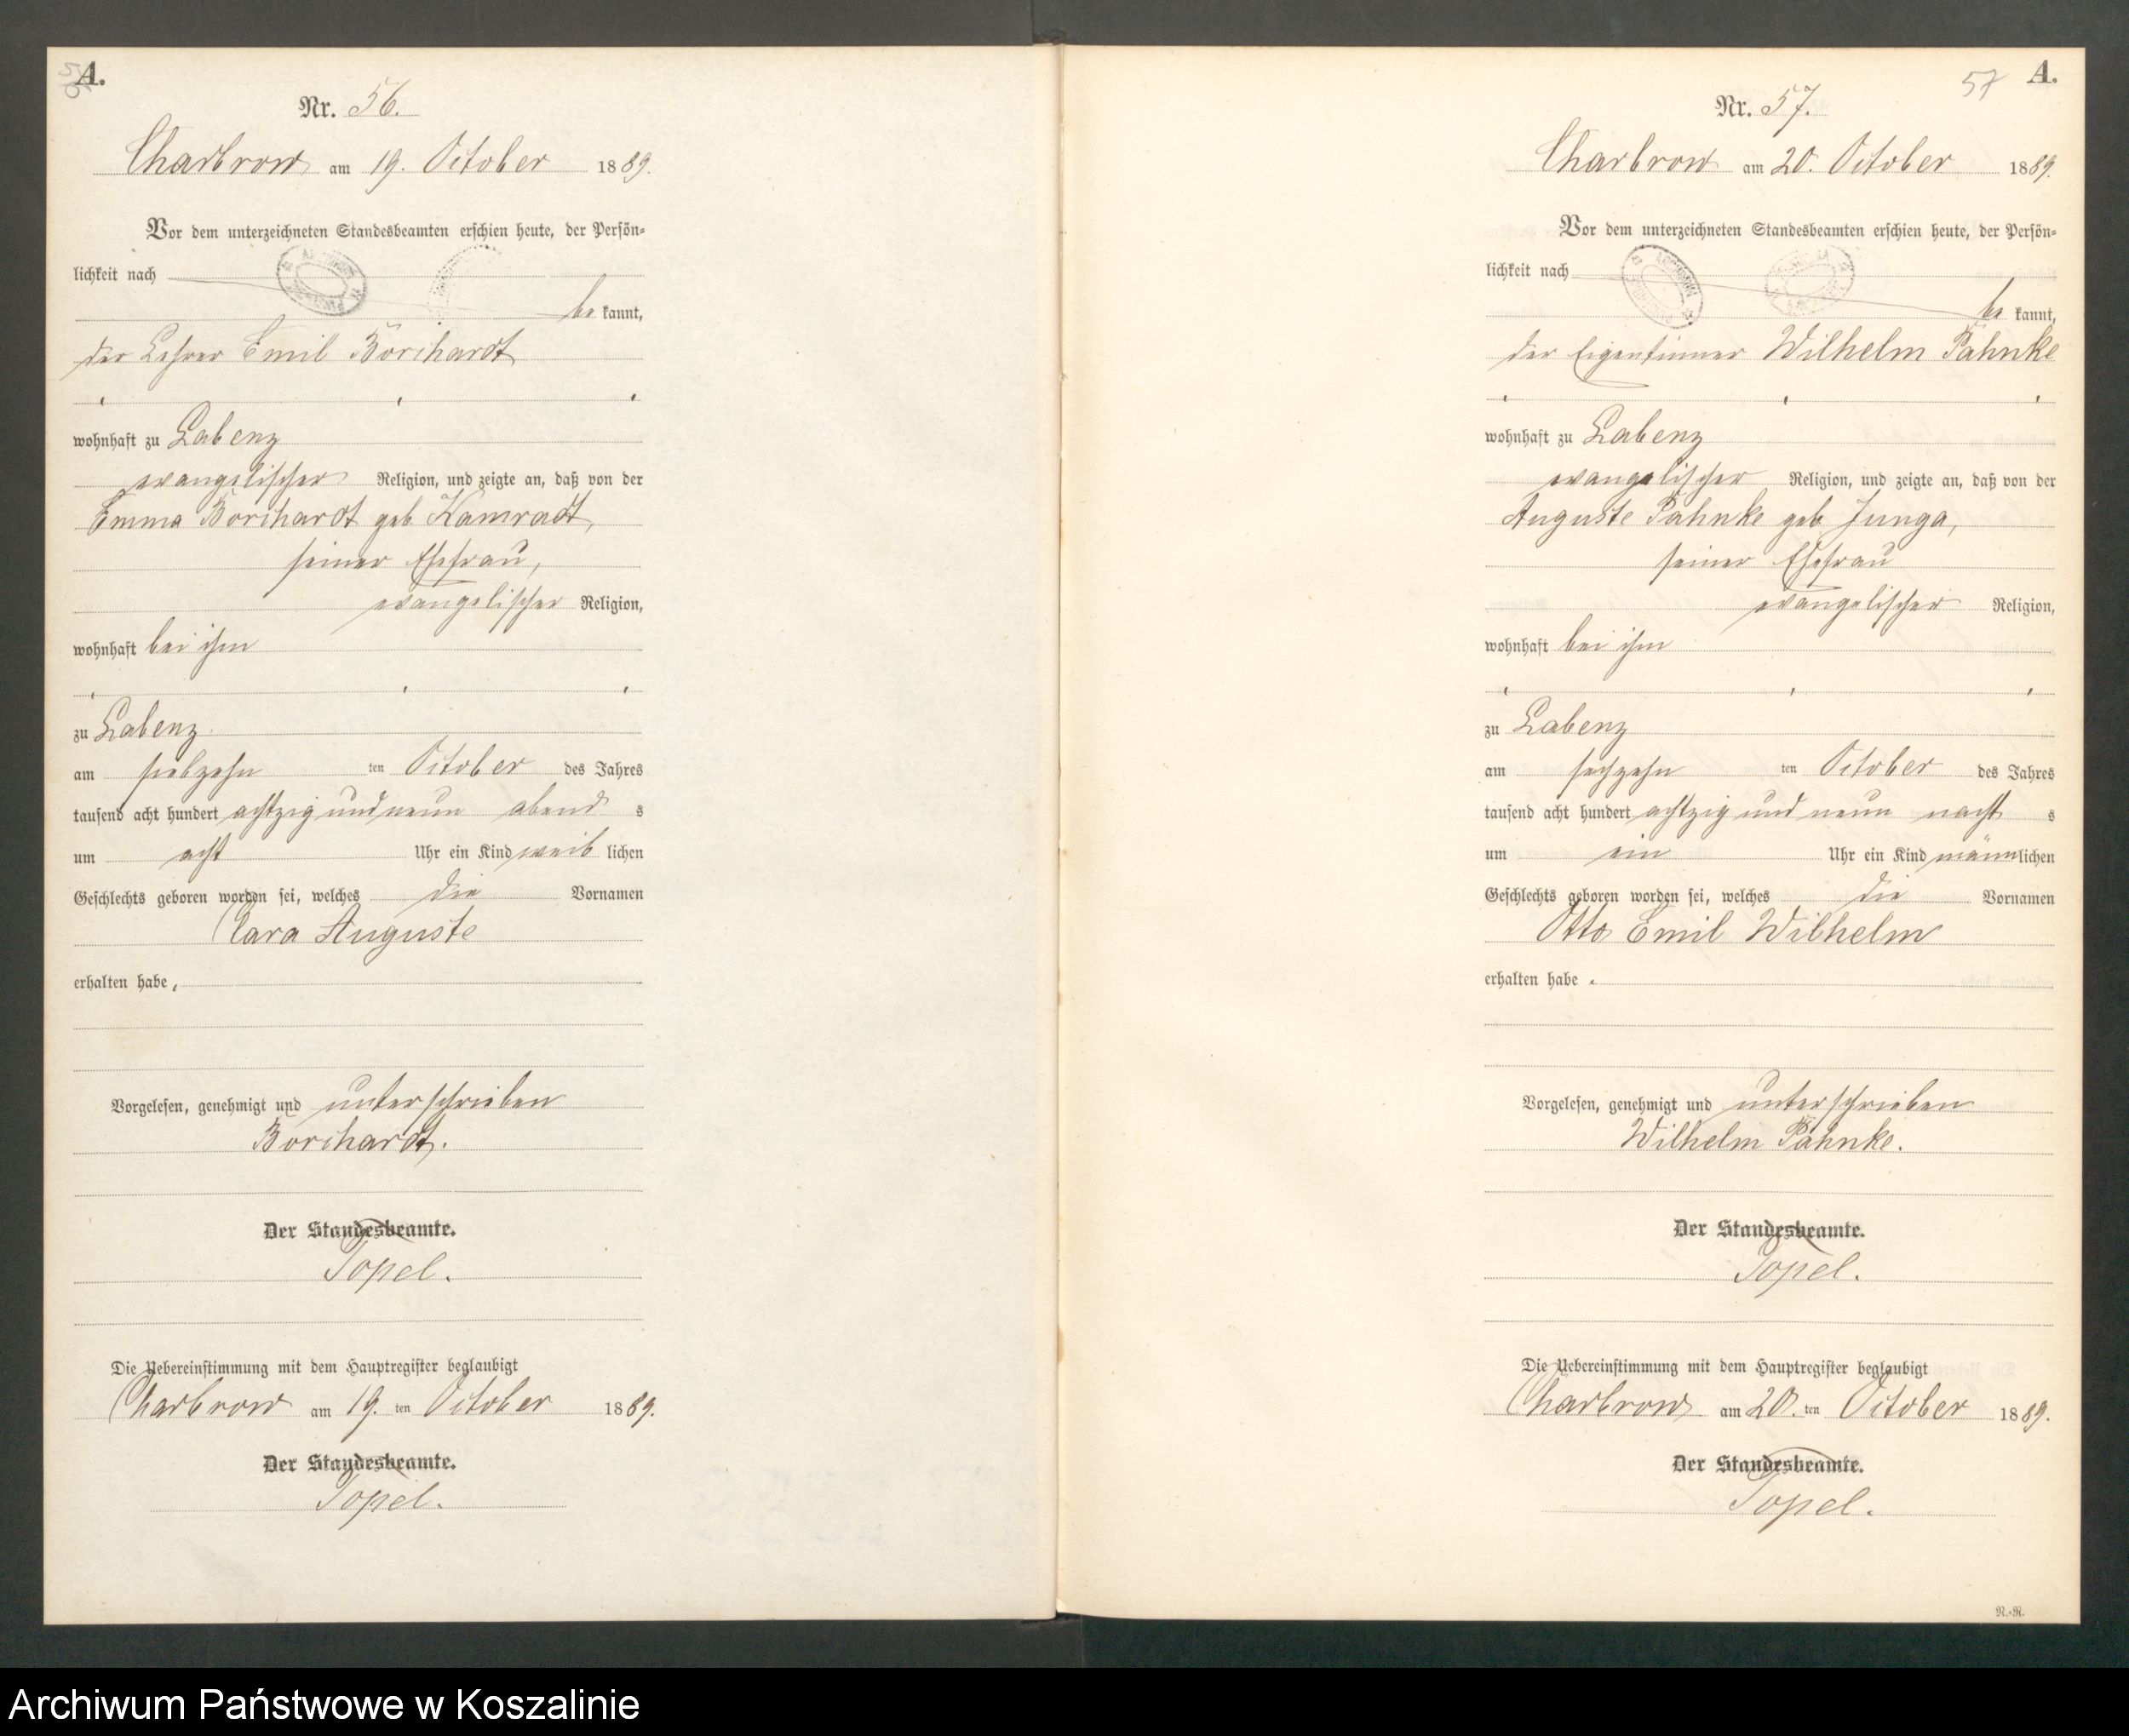 A.
Nr. 56.
Charbrow am 19. October 1889.
Vor dem unterzeichneten Standesbeamten erschien heute, der Persön-
lichkeit nach
be kannt,
der Lehrer Emil Borchardt
wohnhaft zu Labenz
evangelischer Religion, und zeigte an, daß von der
Emma Borchardt geb. Kamradt,
seiner Ehefrau,
evangelischer Religion,
wohnhaft bei ihm
zu Labenz
am siebzehn ten October des Jahres
tausend acht hundert achtzig und neun abend s
um acht Uhr ein Kind weib lichen
Geschlechts geboren worden sei, welches die Vornamen
Clara Auguste
erhalten habe.
Vorgelesen, genehmigt und unterschrieben
Borchardt.
Der Standesbeamte.
Topel.
Die Uebereinstimmung mit dem Hauptregister beglaubigt
Charbrow am 19. ten October 1889.
Der Standesbeamte.
Topel.
57 A.
Nr. 57.
Charbrow am 20. October 1889.
Vor dem unterzeichneten Standesbeamten erschien heute, der Persön-
lichkeit nach
be kannt,
der Eigenthümer Wilhelm Pahnke
wohnhaft zu Labenz
evangelischer Religion, und zeigte an, daß von der
Auguste Pahnke geb. Junga,
seiner Ehefrau
evangelischer Religion,
wohnhaft bei ihm
zu Labenz
am sechzehn ten October des Jahres
tausend acht hundert achtzig und neun nacht s
um ein Uhr ein Kind männlichen
Geschlechts geboren worden sei, welches die Vornamen
Otto Emil Wilhelm
erhalten habe.
Vorgelesen, genehmigt und unterschrieben
Wilhelm Pahnke.
Der Standesbeamte.
Topel.
Die Uebereinstimmung mit dem Hauptregister beglaubigt
Charbrow am 20. ten October 1889.
Der Standesbeamte.
Topel.
R.-R.
Archiwum Państwowe w Koszalinie